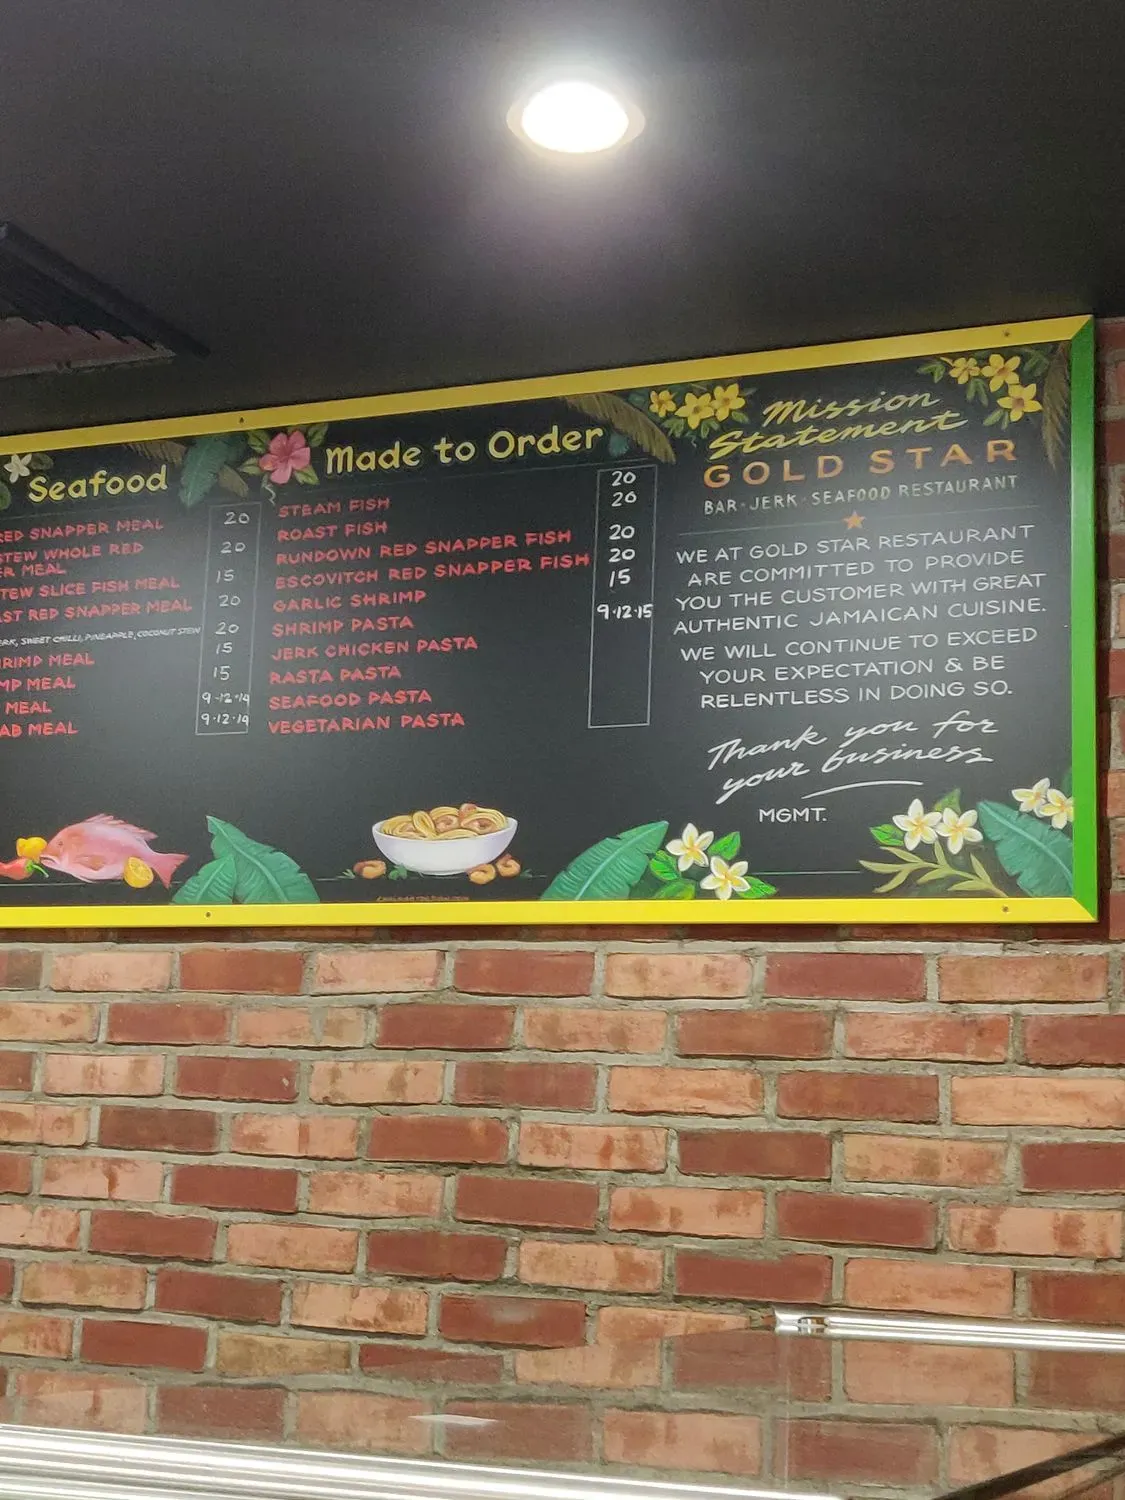 Seafood
RED SNAPPER MEAL 20
STEW WHOLE RED 20
ER MEAL
STEW SLICE FISH MEAL 15
AST RED SNAPPER MEAL 20
ERK, SWEET CHILLI, PINEAPPLE, COCONUT STEW 20
RIMP MEAL 15
MP MEAL 15
MEAL 9-12-14
AB MEAL 9-12-14
Made to Order
STEAM FISH 20
ROAST FISH 20
RUNDOWN RED SNAPPER FISH 20
ESCOVITCH RED SNAPPER FISH 20
GARLIC SHRIMP 15
SHRIMP PASTA 9-12-15
JERK CHICKEN PASTA
RASTA PASTA
SEAFOOD PASTA
VEGETARIAN PASTA
Mission
Statement
GOLD STAR
BAR - JERK - SEAFOOD RESTAURANT
WE AT GOLD STAR RESTAURANT
ARE COMMITTED TO PROVIDE
YOU THE CUSTOMER WITH GREAT
AUTHENTIC JAMAICAN CUISINE.
WE WILL CONTINUE TO EXCEED
YOUR EXPECTATION & BE
RELENTLESS IN DOING SO.
Thank you for
your business
MGMT.